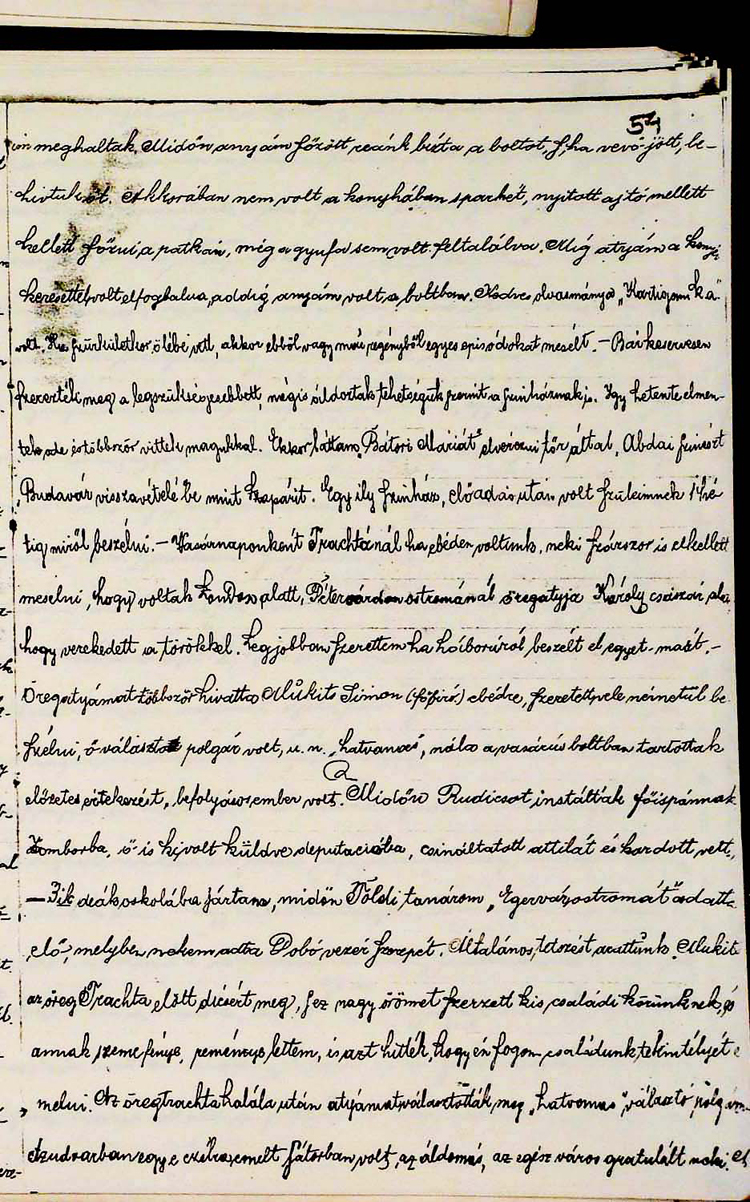 54
meghaltak. Midőn anyám főzött reánk bízta a boltot, s ha vevő jött, be-
hivtuk őt. Akkorában nem volt a konyhában sparhét, nyitott ajtó mellett
kellett főzni, a patkán, még a gyufa sem volt feltalálva. Míg atyám a
keresettel volt elfoglalva, addig anyám volt a boltban. Kedves olvasmánya „Kartigám" ka
volt. Ha szürkületkor ölébe vett, akkor ebből vagy más regényből egyes episódokat mesélt. — Bár keservesen
szerezték meg a legszükségesebbett, mégis áldoztak tehetségük szerint a szinháznak is. Igy hetente elmen-
tek oda és többször vittek magukkal. Ekkor láttam „Bátori Máriát" elvérezni tőr által, Abdai szinészt
„Budavár visszavételé"be mint Kaspárit. Egy ily szinház, előadás után volt szüleimnek 14 hé
tig miről beszélni. — Vasárnaponként Trachtánál ha ebéden voltunk, neki százszor is el kellett
mesélni, hogy voltak London alatt, Pétervárdon ostrománál öregatyja Károly császár
hogy verekedett a törökkel. Legjobban szerettem ha háborúról beszélt el egyet-mást. —
Öregatyámat többször hivatta Mukits Simon (főbiró) ebédre, szeretett vele németül be
szélni, ő választott polgár volt, u. n. „hatvanas", nála a vasárús boltban tartottak
előzetes értekezést, befolyásos ember volt. Midőn Rudicsot instálták főispánnak
Zomborba, ő is ki volt küldve deputációba, csináltatott attilát és kardott vett,
— 3ik deák oskolába jártam, midőn Földi tanárom „Egervár ostromát" adatta
elő, melyben nekem adta Dobó vezér szerepét. Általános tetszést arattunk. Mukits
az öreg Trachta előtt dicsért meg, s ez nagy örömet szerzett kis családi körünknek, és
annak szeme fénye, reménye lettem, is azt hitték, hogy én fogom családunk tekintélyét e
melni. Az öreg Trachta halála után atyámat választották meg „hatvanas" választó
udvarban egy e célra emelt sátorban volt az áldomás, az egész város gratulált neki.